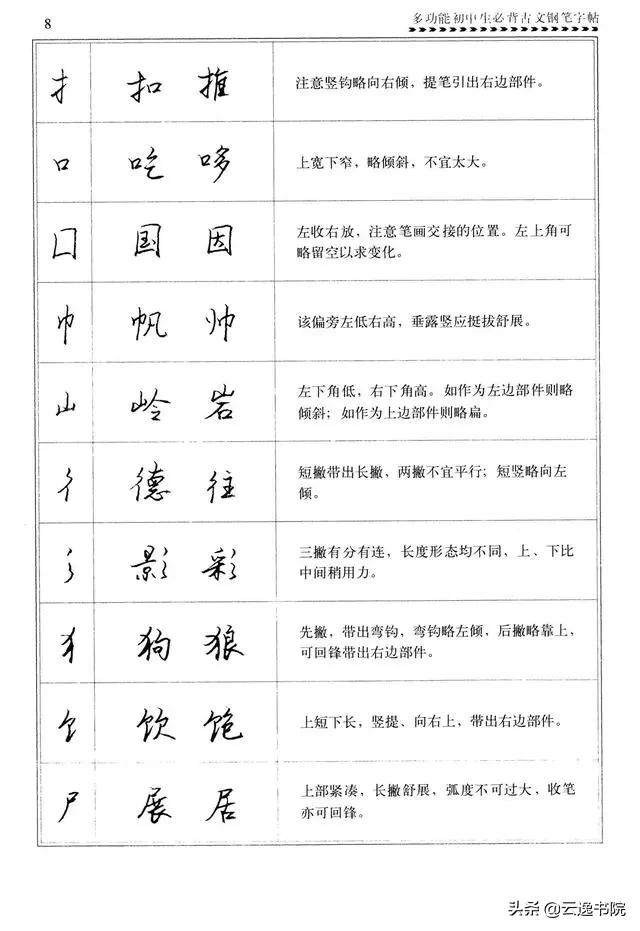 8
多功能初中生必背古文钢笔字帖
扌 扣 推
注意竖钩略向右倾，提笔引出右边部件。
口 吃 哆
上宽下窄，略倾斜，不宜太大。
囗 国 因
左收右放，注意笔画交接的位置。左上角可
略留空以求变化。
巾 帆 帅
该偏旁左低右高，垂露竖应挺拔舒展。
山 岭 岩
左下角低，右下角高。如作为左边部件则略
倾斜；如作为上边部件则略扁。
彳 德 往
短撇带出长撇，两撇不宜平行；短竖略向左
倾。
彡 影 彩
三撇有分有连，长度形态均不同，上、下比
中间稍用力。
犭 狗 狼
先撇，带出弯钩，弯钩略左倾，后撇略靠上，
可回锋带出右边部件。
饣 饮 饱
上短下长，竖提、向右上，带出右边部件。
尸 展 居
上部紧凑，长撇舒展，弧度不可过大，收笔
亦可回锋。
头条 @云逸书院